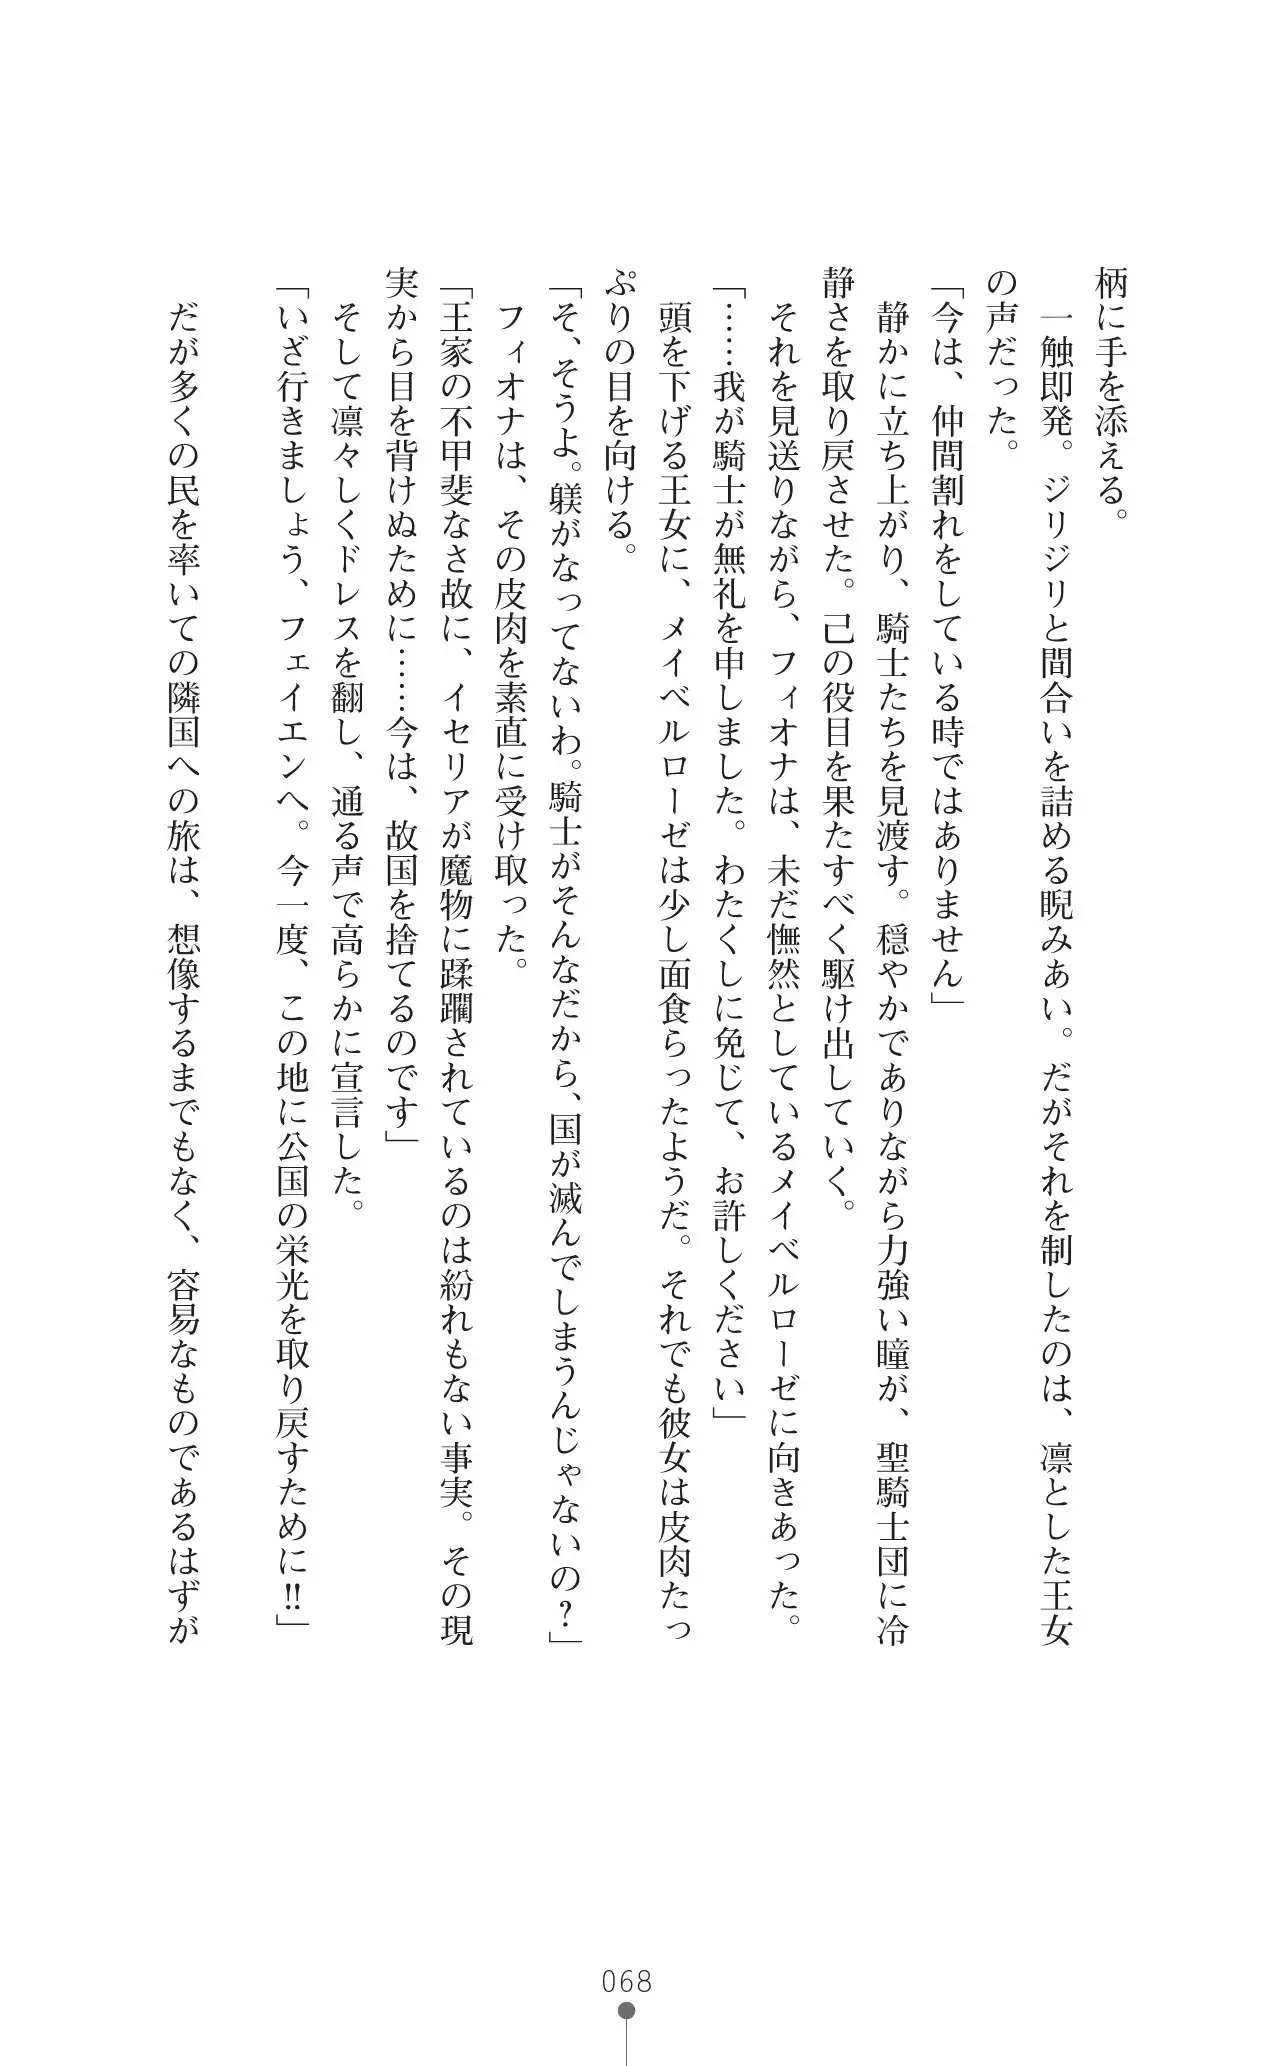 柄に手を添える。
　一触即発。ジリジリと間合いを詰める睨みあい。だがそれを制したのは、凛とした王女
の声だった。
「今は、仲間割れをしている時ではありません」
　静かに立ち上がり、騎士たちを見渡す。穏やかでありながら力強い瞳が、聖騎士団に冷
静さを取り戻させた。己の役目を果たすべく駆け出していく。
　それを見送りながら、フィオナは、未だ憮然としているメイベルローゼに向きあった。
「……我が騎士が無礼を申しました。わたくしに免じて、お許しください」
　頭を下げる王女に、メイベルローゼは少し面食らったようだ。それでも彼女は皮肉たっ
ぷりの目を向ける。
「そ、そうよ。躾がなってないわ。騎士がそんなだから、国が滅んでしまうんじゃないの？」
　フィオナは、その皮肉を素直に受け取った。
「王家の不甲斐なさ故に、イセリアが魔物に蹂躙されているのは紛れもない事実。その現
実から目を背けぬために……今は、故国を捨てるのです」
　そして凛々しくドレスを翻し、通る声で高らかに宣言した。
「いざ行きましょう、フェイエンへ。今一度、この地に公国の栄光を取り戻すために!!」
　だが多くの民を率いての隣国への旅は、想像するまでもなく、容易なものであるはずが
068